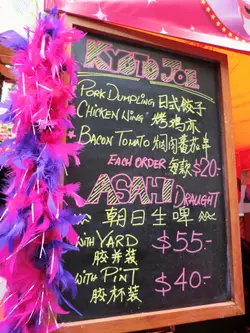 KYOTO JOE
PORK DUMPLING 日式餃子
CHICKEN WING 烤鸡亦
BACON TOMATO 烟肉蕃茄串
EACH ORDER 每款 $20.-
ASAHI DRAUGHT
朝日生啤
WITH YARD $55.-
胶座装
WITH PINT $40.-
胶杯装